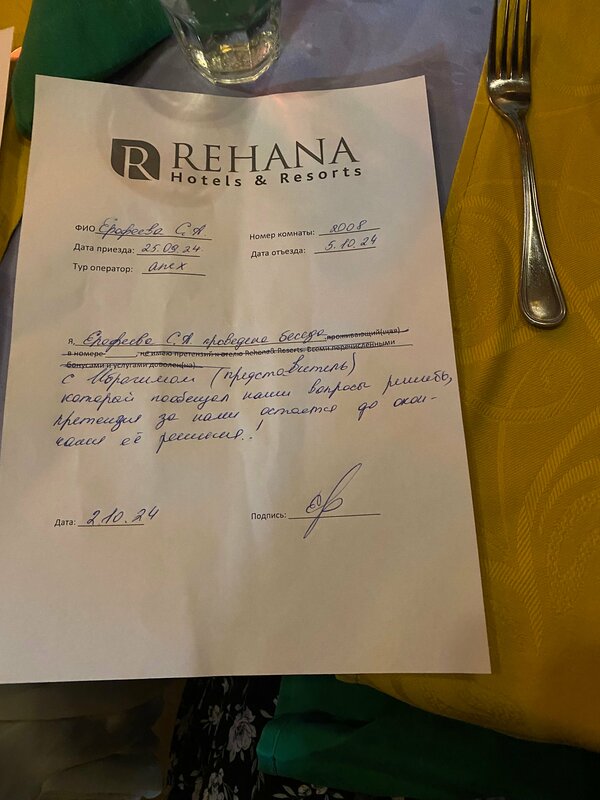 R REHANA
Hotels & Resorts
ФИО Ерофеева С.А
Номер комнаты: 2008
Дата приезда: 25.09.24
Дата отъезда: 5.10.24
Тур оператор: анех
Я, Ерофеева С.А проведена беседа, проживающий(щая)
в номере , не имею претензий к отелю Rehana& Resorts. Всеми перечисленными
бонусами и услугами доволен(на)
с Ибрагимом (представитель)
который пообещал наши вопросы решить,
претензия за нами остается до окон-
чания её решения..!
Дата: 2.10.24
Подпись: